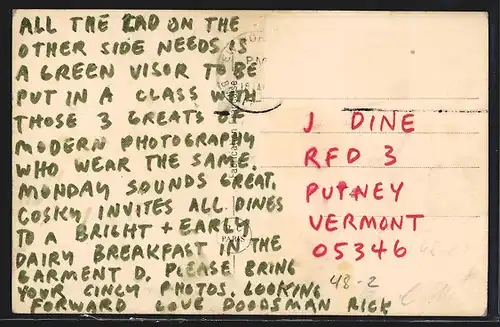 ALL THE LAD ON THE
OTHER SIDE NEEDS IS
A GREEN VISOR TO BE
PUT IN A CLASS WITH
THOSE 3 GREATS OF
MODERN PHOTOGRAPHY
WHO WEAR THE SAME.
MONDAY SOUNDS GREAT.
COSKY INVITES ALL DINES
TO A BRIGHT + EARLY
DAIRY BREAKFAST IN THE
GARMENT D. PLEASE BRING
YOUR CINCY PHOTOS. LOOKING
FORWARD LOVE DOODSMAN RICK
J DINE
RFD 3
PUTNEY
VERMONT
05346
48-2